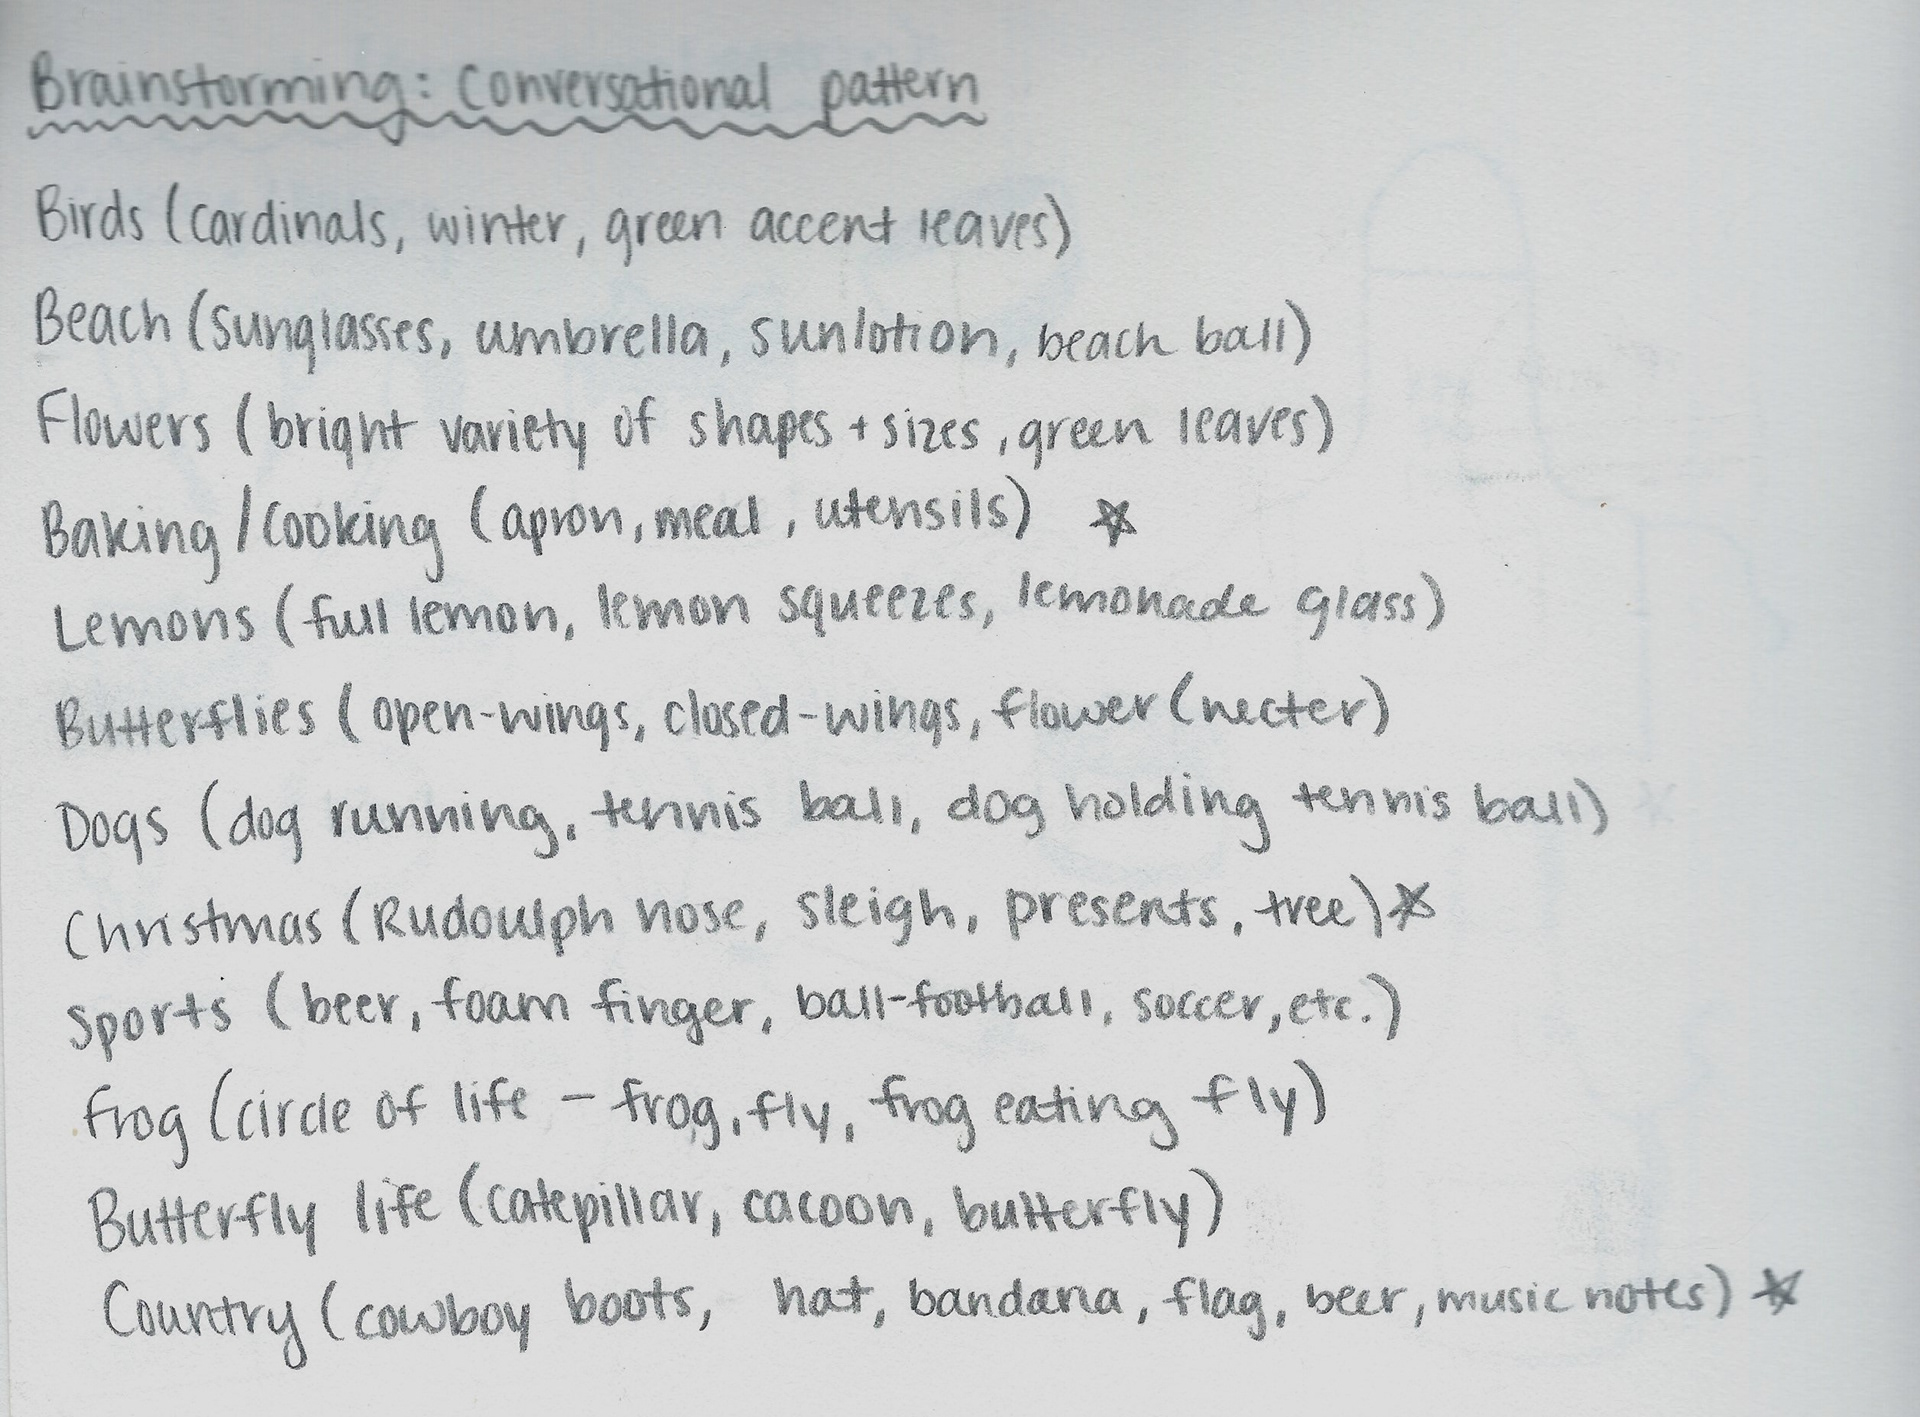 Brainstorming: Conversational pattern
Birds (cardinals, winter, green accent leaves)
Beach (sunglasses, umbrella, sunlotion, beach ball)
Flowers (bright variety of shapes + sizes, green leaves)
Baking/Cooking (apron, meal, utensils) ☆
Lemons (full lemon, lemon squeezes, lemonade glass)
Butterflies (open-wings, closed-wings, flower (necter)
Dogs (dog running, tennis ball, dog holding tennis ball)
Christmas (Rudoulph nose, sleigh, presents, tree) ☆
Sports (beer, foam finger, ball-football, soccer, etc.)
Frog (circle of life - frog, fly, frog eating fly)
Butterfly life (catepillar, cacoon, butterfly)
Country (cowboy boots, hat, bandana, flag, beer, music notes) ☆